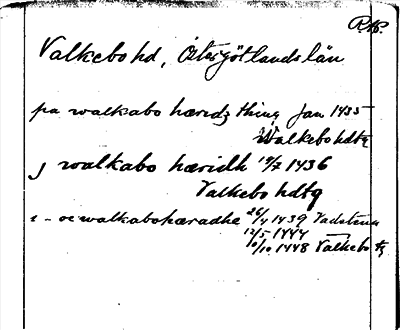 RAP.
Valkebo hd, Östergötlands län
pa walkabo hæredz thing Jan 1435
Walkebo hdtg
j walkabo hæridh 17/7 1436
Valkebo hdtg
i - walkabohæradhe 26/4 1439 Vadstena
12/5 1444
10/10 1448 Valkebo tg